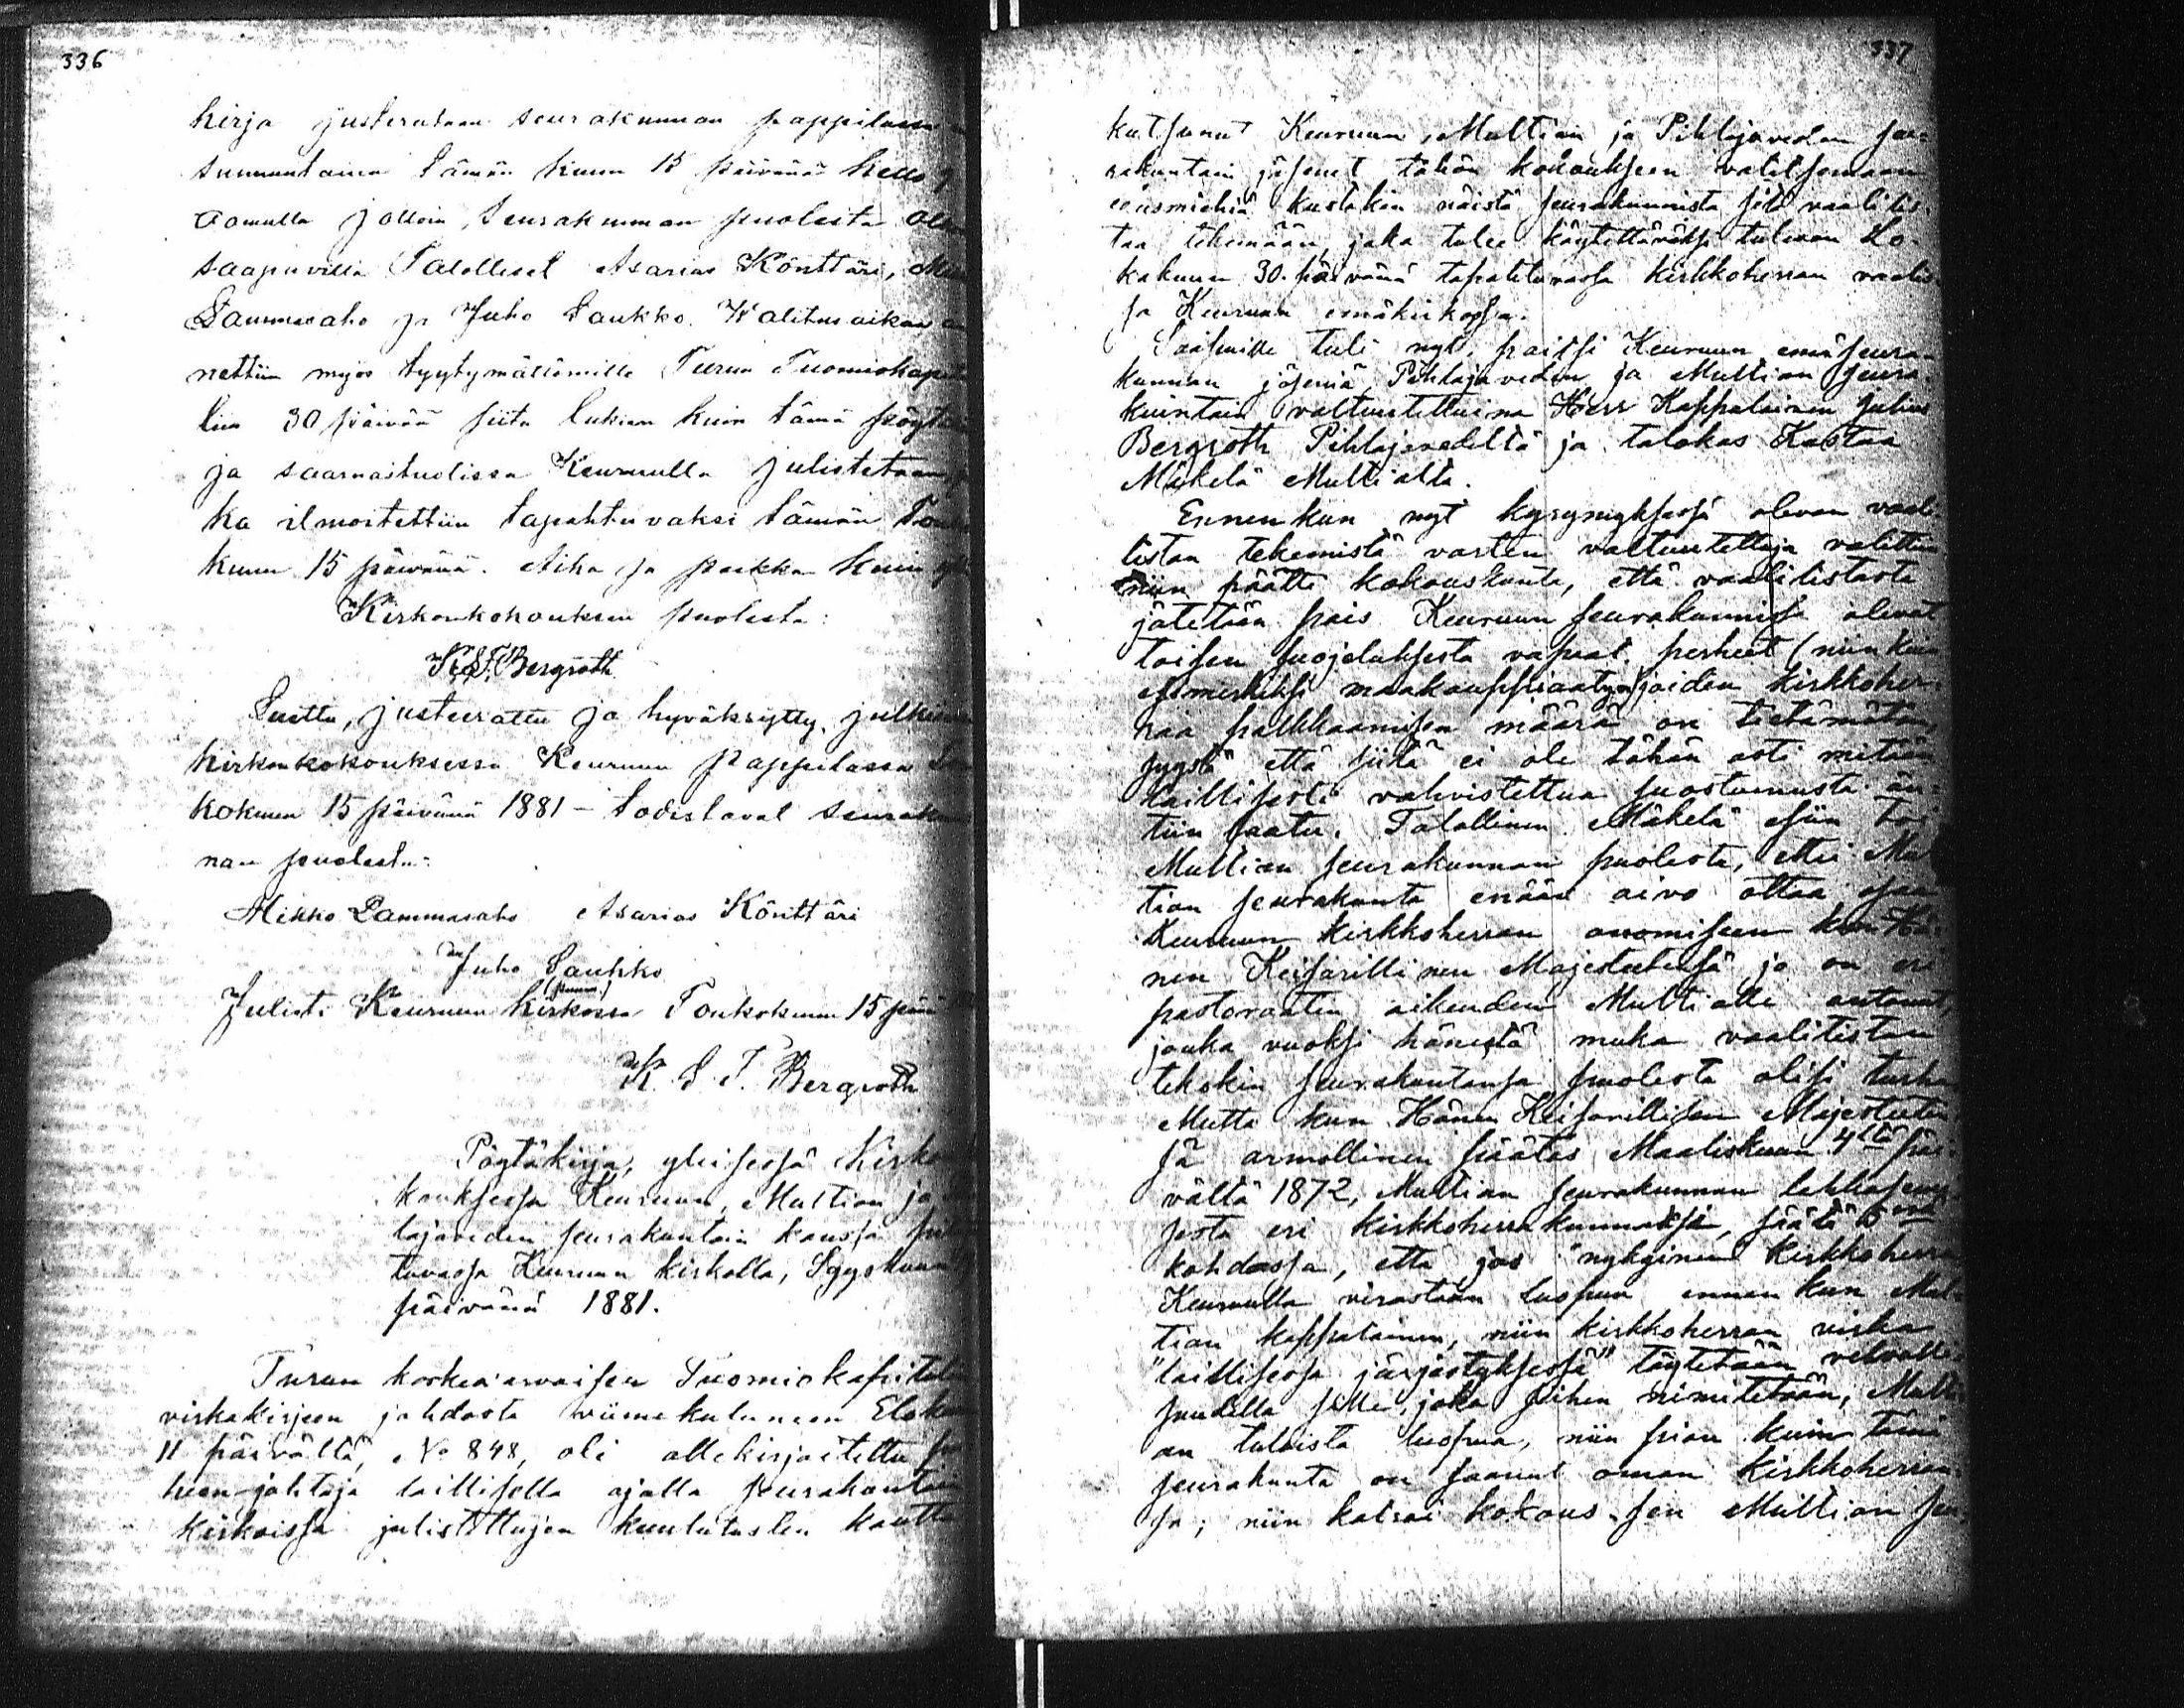 336
kirja justerataan seurakunnan pappilassa
sunnuntaina tämän kuun 15 päivänä kello
aamulla jolloin seurakunnan puolesta
saapuvilla Talolliset Asarias Könttäri,
Lammasaho ja Juho Saukko. Walitusaikaa
nettiin myös tyytymättömille Turun Tuomiokapit
liin 30 päivää siitä lukien kuin tämä pöytä
ja saarnastuolissa Keuruulla julistetaan
ka ilmoitettiin tapahtuvaksi tämän Tou
kuun 15 päivänä. Aika ja paikka kuin
Kirkonkokouksen puolesta:
K. S. T. Bergroth
Luettu, justeerattu ja hyväksytty julki
kirkonkokouksessa Keuruun Pappilassa
kokuun 15 päivänä 1881 – todistavat seuraku
nan puolesta:
Mikko Lammasaho Asarias Könttäri
Juho Saukko
Julisti Keuruun kirkossa Toukokuun 15 päi
K. S. T. Bergroth
Pöytäkirja, yleisessä Kirko
kouksessa Keuruun, Multian ja
lajaveden seurakuntain kanssa
tuvassa Keuruun kirkolla, Syyskuun
päivänä 1881.
Turun korkea arvoisen Tuomiokapitul
virkakirjeen johdosta viime kuluneen Elok
11 päivältä, No 848, oli allekirjoitettu
heen-johtaja laillisella ajalla seurakuntain
kirkoissa julistettujen kuulutusten kautta
337
kutsunut Keuruun, Multian ja Pihlajaveden seu-
rakuntain jäsenet tähän kokoukseen valitsemaan
edusmiehiä kustakin näistä seurakunnista sitä vaalilis-
taa tekemään, joka tulee käytettäväksi tulevan Lo-
kakuun 30. päivänä tapahtuvassa kirkkoherran vaalis-
sa Keuruun emäkirkossa.
Saapuille tuli nyt, paitsi Keuruun emäseura-
kunnan jäseniä, Pihlajaveden ja Multian seura-
kuintain valtuutettuina Herr Kappalainen Julius
Bergroth Pihlajavedeltä ja talokas Kustaa
Mäkelä Multialta.
Ennenkun nyt kysymyksessä olevan vaali-
listan tekemistä varten valtuutettuja valittiin
niin päätti kokouskunta, että vaalilistasta
jätetään pois Keuruun seurakunnissa olevat
toisen suojeluksesta vapaat perheet (niinkuin
esimerkiksi maakauppiaat) joiden kirkkoher-
raa palkkaamisen määrä on tietämätön,
syystä että siitä ei ole tähän asti mitään
laillisesti vahvistettua suostumusta än-
tiin saatu. Talollinen Mäkelä esiin toi
Multian seurakunnan puolesta, ettei Mul
tian seurakunta enään aivo ottaa osaa
Keuruun kirkkoherran anomiseen kun Hä-
nen Keisarillinen Majesteetinsä jo on eri
pastoraatin oikeuden Multialle antanut,
jonka vuoksi hänestä muka vaalilistan
tekokin seurakuntansa puolesta olisi turha
Mutta kun Hänen Keisarillisen Majesteetin
sä armollinen päätös Maaliskuun 4tä päi-
vältä 1872, Multian seurakunnan lohkasemi
sesta eri kirkkoherrakunnaksi, säätä
kohdassa, että jos "nykyinen kirkkoherra
Keuruulla virastaan luopuu ennen kun Mul
tian kappalainen, niin kirkkoherran virka
"laillisessa järjestyksessä" täytetään velvolli-
suudella sille, joka siihen nimitetään, Multi
an tuloista luopua, niin pian kuin tämä
seurakunta on saanut oman kirkkoherran-
sa; niin katsoi kokous sen Multian seu-